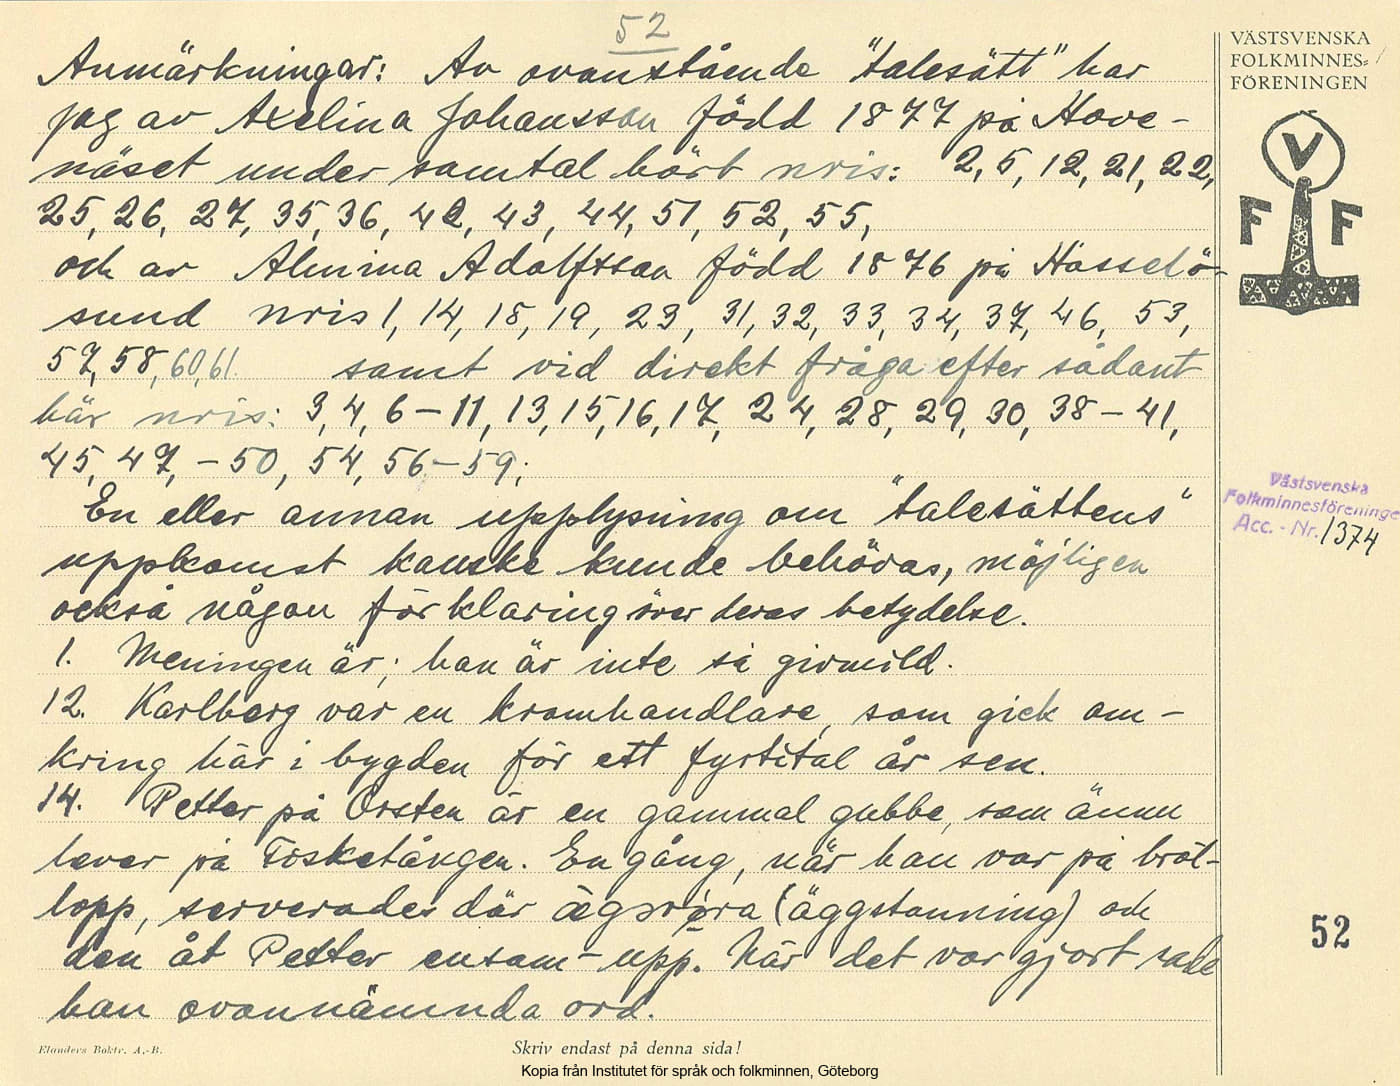 52
Anmärkningar: Av ovanstående "talesätt" har
jag av Axelina Johansson född 1877 på Hove-
näset under samtal hört nris: 2, 5, 12, 21, 22,
25, 26, 27, 35, 36, 42, 43, 44, 51, 52, 55,
och av Almina Adolfsson född 1876 på Hasselö-
sund nris 1, 14, 18, 19, 23, 31, 32, 33, 34, 37, 46, 53,
57, 58, 60, 61. samt vid direkt fråga efter sådant
här nris: 3, 4, 6-11, 13, 15, 16, 17, 24, 28, 29, 30, 38-41,
45, 47,-50, 54, 56-59;
En eller annan upplysning om "talesättens"
uppkomst kanske kunde behövas, möjligen
också någon förklaring över deras betydelse.
1. Meningen är; han är inte så givmild.
12. Karlberg var en kramhandlare, som gick om-
kring här i bygden för ett fyrtital år sen.
14. Petter på Orsten är en gammal gubbe, som ännu
lever på Fisketången. En gång, när han var på bröl-
lopp, serverades där (äggstanning) och
den åt Petter ensam upp. När det var gjort sade
han ovannämnda ord.
VÄSTSVENSKA
FOLKMINNES-
FÖRENINGEN
V
F F
Västsvenska
Folkminnesföreninge
Acc. - Nr. 1374
52
Elanders Boktr. A.-B.
Skriv endast på denna sida!
Kopia från Institutet för språk och folkminnen, Göteborg